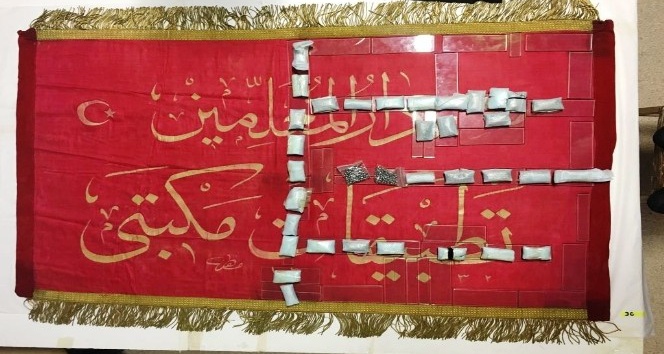 دارالمعلّمين
تطبيقات مكتبى
٣٢
36